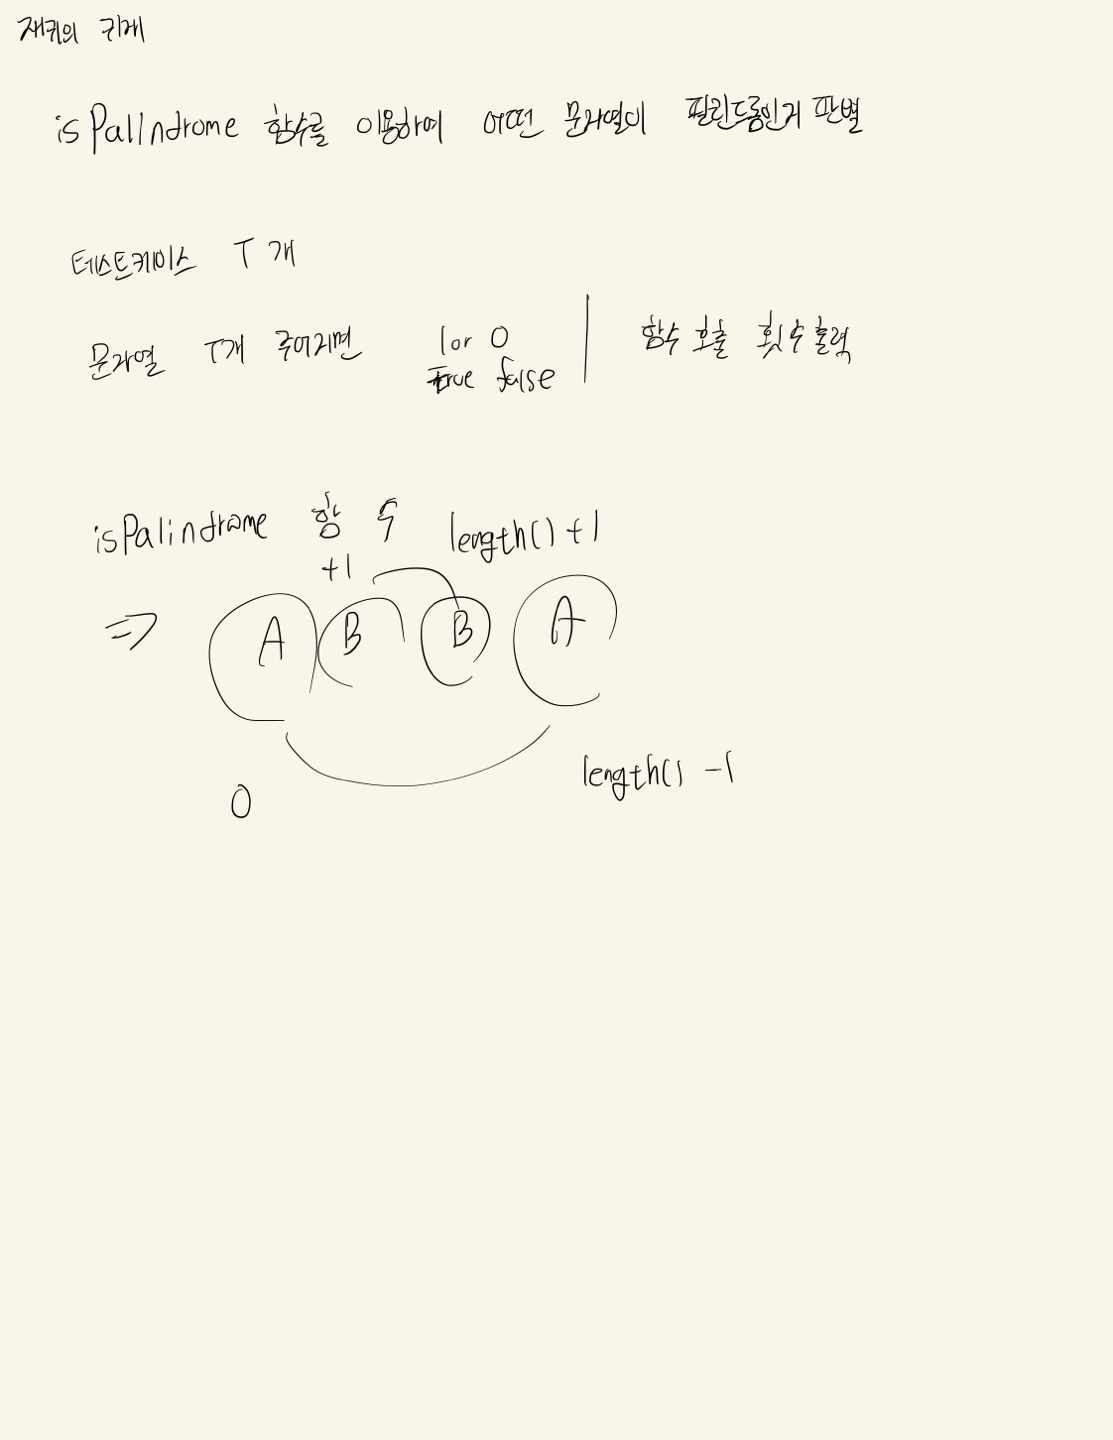 재귀의 귀재
isPalindrome 함수를 이용하여 어떤 문자열이 팰린드롬인지 판별
테스트케이스 T개
문자열 T개 주어지면 1 or 0 함수 호출 횟수 출력
true false
isPalindrome 함수 length() + 1
+1
⇒ A B B A
length() -1
0